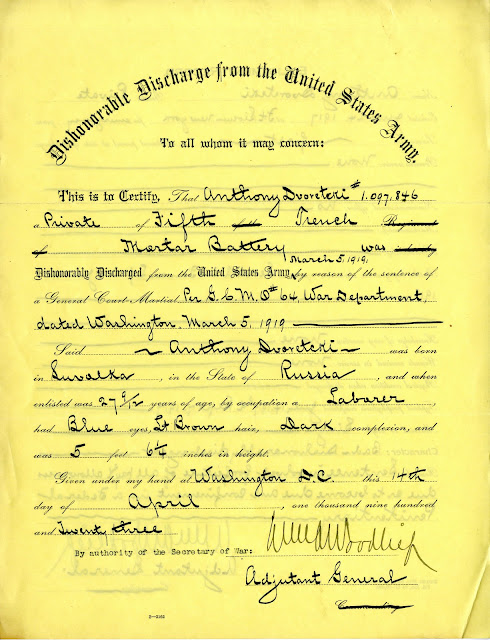 Dishonorable Discharge from the United States Army.
To all whom it may concern:
This is to Certify, That Anthony Dvoretcki # 1.097.846
a Private of Fifth of the Trench Regiment
of Mortar Battery was
March 5, 1919,
Dishonorably Discharged from the United States Army, by reason of the sentence of
a General Court-Martial, Per G.C.M.O # 64, War Department,
dated Washington. March 5, 1919
Said ~ Anthony Dvoretcki ~ was born
in Suvalka, in the State of Russia, and when
enlisted was 27 9/12 years of age, by occupation a Laborer,
had Blue eyes, Lt Brown hair, Dark complexion, and
was 5 feet 6¼ inches in height.
Given under my hand at Washington D.C. this 4th
day of April, one thousand nine hundred
and Twenty three
By authority of the Secretary of War:
Adjutant General
Commanding